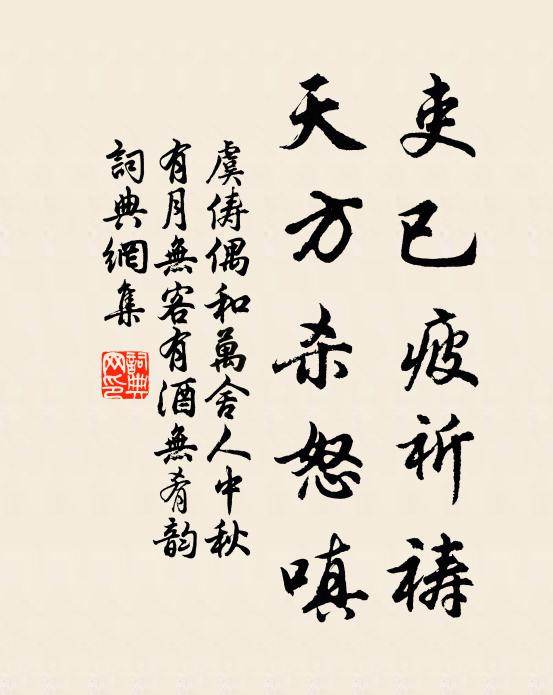 吏已疲祈禱
天方杀怒嗔
虞儔偶和萬舍人中秋
有月無客有酒無肴韵
詞典網集
詞典
网印